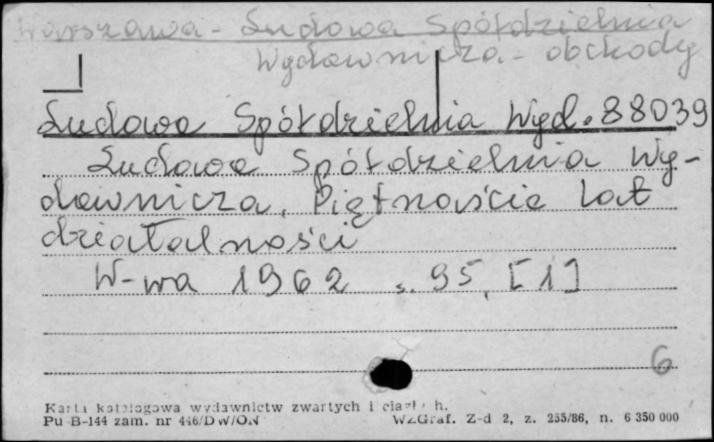 Warszawa - Ludowa Spółdzielnia
Wydawnicza - obchody
Ludowa Spółdzielnia Wyd. 88039
Ludowa Spółdzielnia Wy-
dawnicza. Piętnaście lat
działalności
W-wa 1962 s. 95, [1]
6
Karta katalogowa wydawnictw zwartych i ciągłych.
Pu B-144 zam. nr 446/DW/ON WZGraf. Z-d 2, z. 255/86, n. 6 350 000